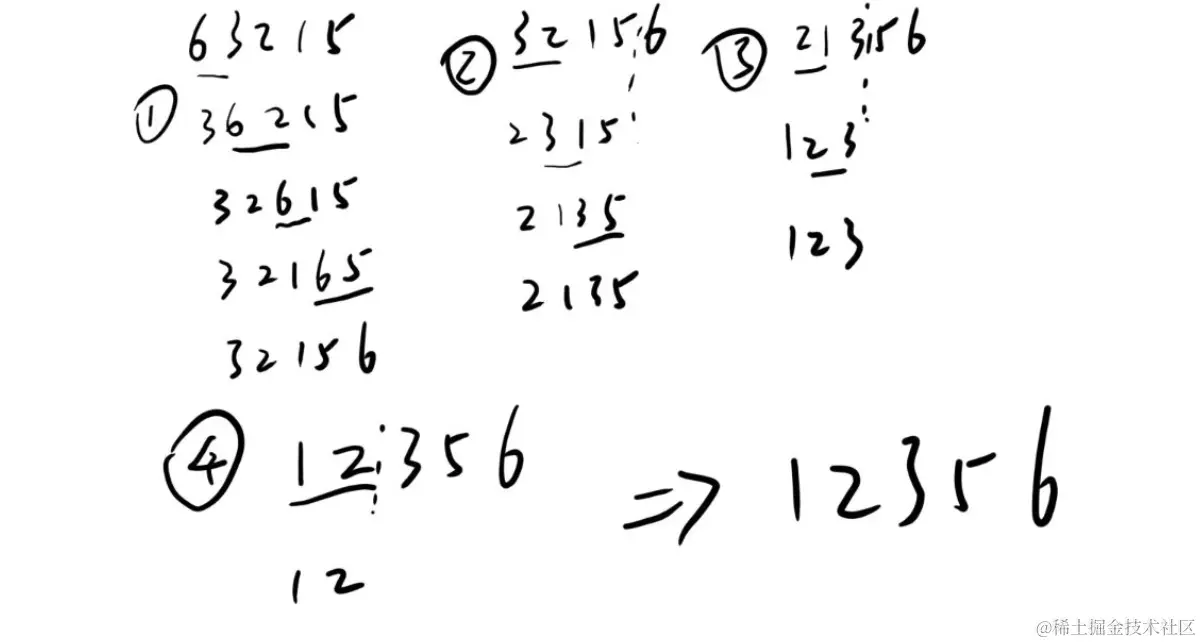 63215
① 36215
32615
32165
32156
② 32156
2315
2135
2135
③ 21356
123
123
④ 12356
12
⇒ 12356
@稀土掘金技术社区